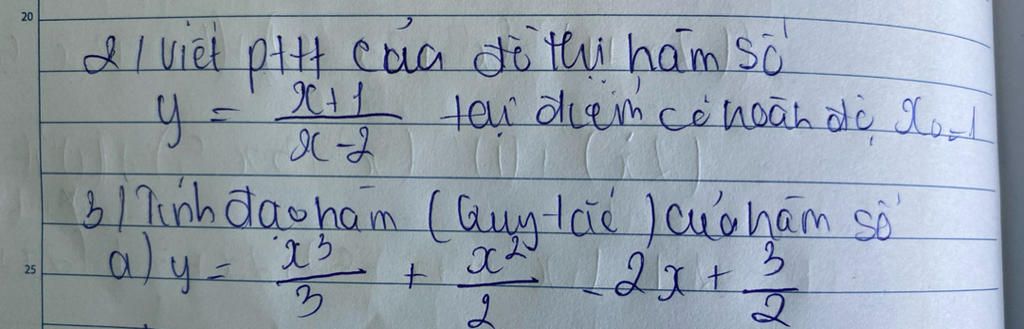 20
2/ Viết pttt của đồ thị hàm số
y = \frac{x+1}{x-2} tại điểm có hoành độ x₀=1
3/ Tính đạo hàm (Quy tắc) của hàm số
25 a) y = \frac{x^3}{3} + \frac{x^2}{2} - 2x + \frac{3}{2}